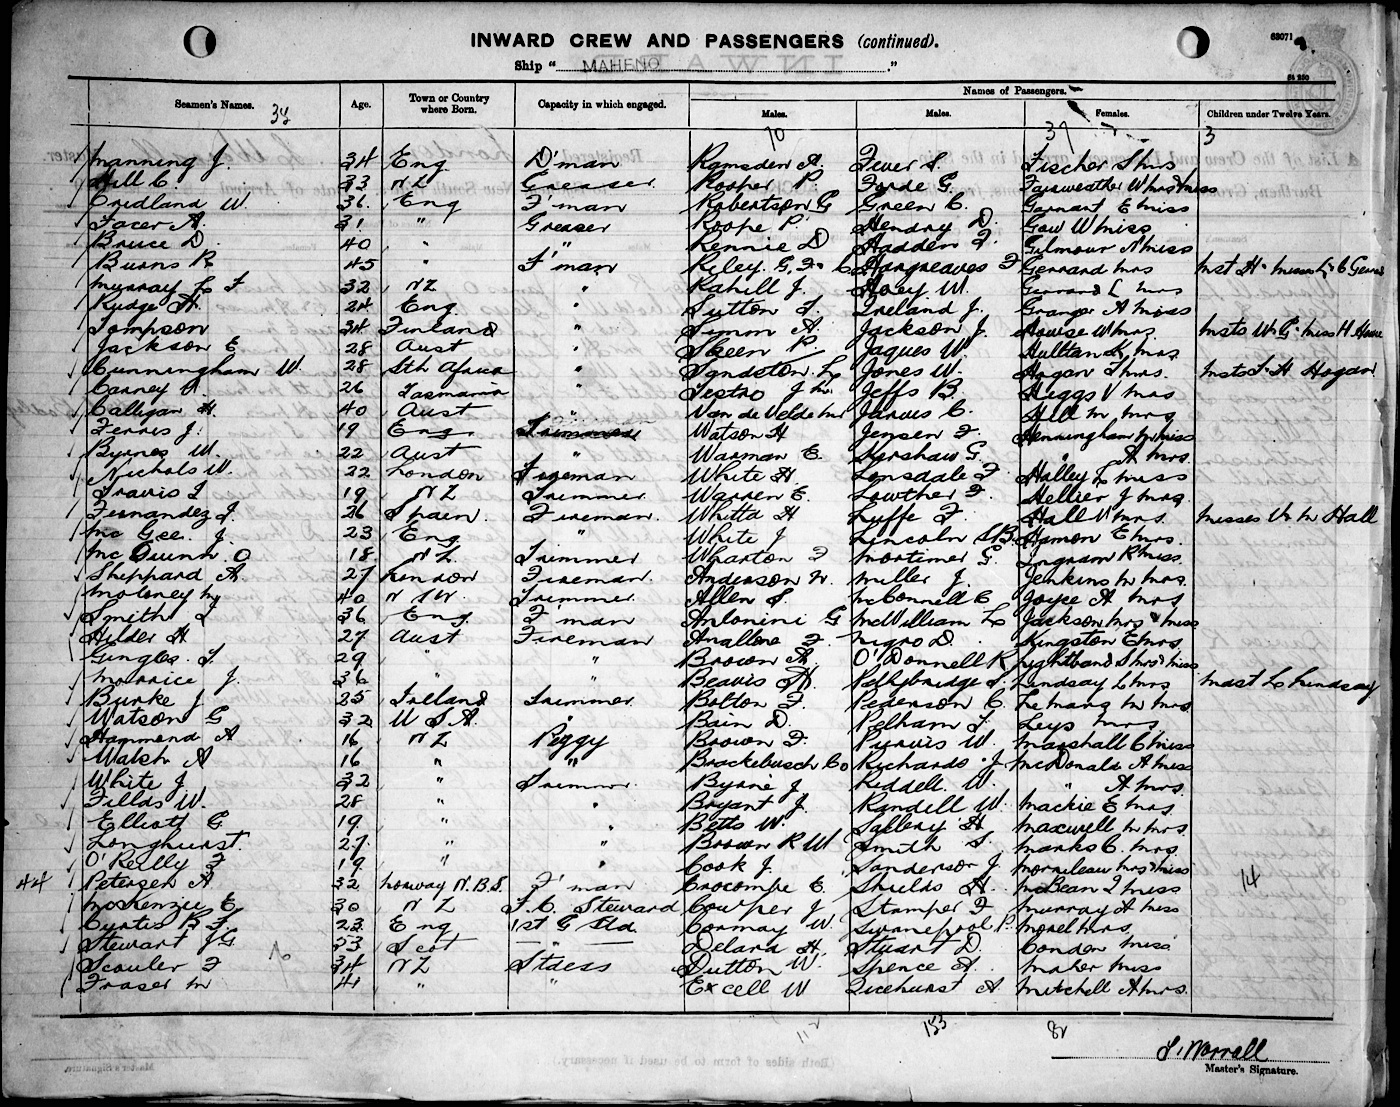 63071
INWARD CREW AND PASSENGERS (continued).
Ship " MAHENO "
64 250
Seamen's Names. Age. Town or Country where Born. Capacity in which engaged. Names of Passengers.
Males. Males. Females. Children under Twelve Years.
70 37 3
Manning J. 34 Eng D'man Ramsden A. Fever S. Fischer S mrs
Hill C. 33 N Z Greaser Rooper P. Forde G. Fairweather W mrs & miss
Cridland W. 36 Eng F'man Robertson G Green C. Garnart E miss
Facer A. 31 " Greaser Roope P. Hendry D. Gow W miss
Bruce D. 40 " " Rennie D Hadden F. Gilmour N miss
Burns R 45 " F'man Riley. G. F. C Hargreaves F Gerrard mrs Mst H. misses L & C Gerrard
Murray L F 32 N Z " Rahill J. Hoey W. Gerrard L mrs
Rudge H. 24 Eng. " Sutton F. Ireland J. Granger A miss
Tompson 34 Finland " Simm A. Jackson J. Howise W mrs. Msts W. G. miss H
Jackson E 28 Aust " Skeen P. Jaques W. K. mrs
Cunningham W. 28 Sth Africa " Sandston L. Jones W. Hogan T mrs. Msts J. H Hogan
Carney 26 Tasmania " Testro J Jeffs B. Higgs V mrs
Calligan H. 40 Aust " Van de Velde mr Jarvis C. Hill m. mrs
Ferris J. 19 Eng. Trimmer Watson H Jensen F. Henningham m miss
Byrnes W. 22 Aust " Warman E. Kershaw G. " A mrs.
Nichols W. 22 London Fireman White H Lonsdale F. Halley L miss
Travis T 19 N Z Trimmer Warren E. Lowther F. Hellier J mrs.
Fernandez J. 26 Spain. Fireman. Whitta H Luffe F. Hall V mrs. Misses V. M Hall
Mc Gee. J. 23 Eng " White J Lincoln S.B. E mrs.
Mc Quinn. O 18 N Z. Trimmer Wharton F Mortimer G. Ingram R miss.
Sheppard A. 27 London Fireman. Anderson W. Miller J. Jenkins m mrs.
Moloney M. 40 N S W. Trimmer. Allen S. McConnell C Joyce A mrs
Smith J 36 Eng. F'man Antonini G McWilliam L Jackson mrs & miss
Hilder H 27 Aust Fireman F. Nigro D. Kingston E mrs.
Gingles. T. 29 " " Brown A. O'Donnell K Lightband S mrs & miss
Morrice J. 36 " " Beavis H. Pethybridge S. Lindsay L mrs Mast L Lindsay
Burke J 25 Ireland Trimmer Bolton F. Pederson C. m mrs.
Watson G 32 U S A. " Bain D. Pelham F. Leys mrs
Hammond A 16 N Z Peggy Brown F. Purvis W. Marshall C miss
Walsh A 16 " " Brackebusch Co Richards J McDonald A miss
White J 32 " Trimmer Byrne J Riddell. W. " A mrs.
Fields W. 28 " " Bryant J. Randell W. Mackie E mrs
Elliott G 19 " " Betts W. Sallery H Maxwell m mrs.
Longhurst. 27 " " Brown R W. Smith S. Marks C. mrs
O'Reilly F 19 " " Cook J. Sanderson J. mrs & miss
44 Petersen A 32 Norway N.B.S. F'man Crocombe E. Shields H. McBean F miss 14
McKenzie E 30 N Z F.C. Steward Cowper J Stamper F Murray A miss
Curtis B F. 23 Eng 1st G Std. Cormay W. Swanepool P. Morel mrs.
Stewart J G 53 Scot " Delara H. Stuart D. Condon miss
Scouler F 34 N Z Stdess Dutton W. Spence A. Maher miss
Fraser M 41 " " Excell W A. Mitchell A mrs.
112 153 82
Master's Signature.